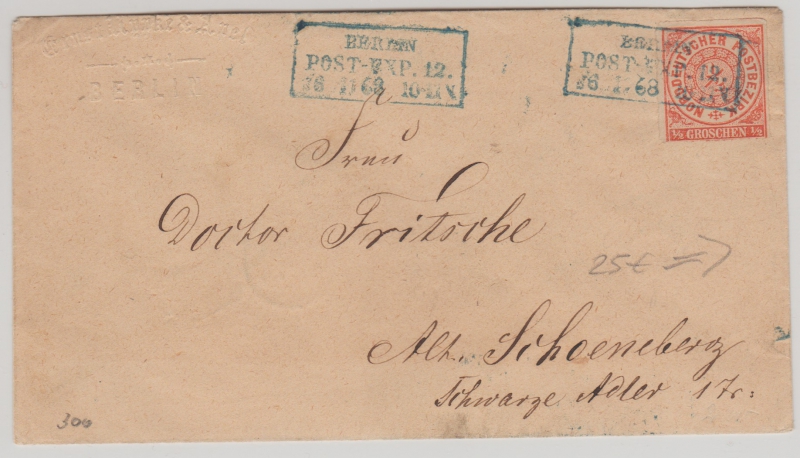 BERLIN
BERLIN
POST-EXP. 12.
68 10-11V.
BERLIN
POST-EXP. 12.
68
NORDDEUTSCHER POSTBEZIRK
1/2 GROSCHEN 1/2
Frau
Doctor Fritsche
25€
Alt. Schoeneberg
Schwarze Adler 17c:
300